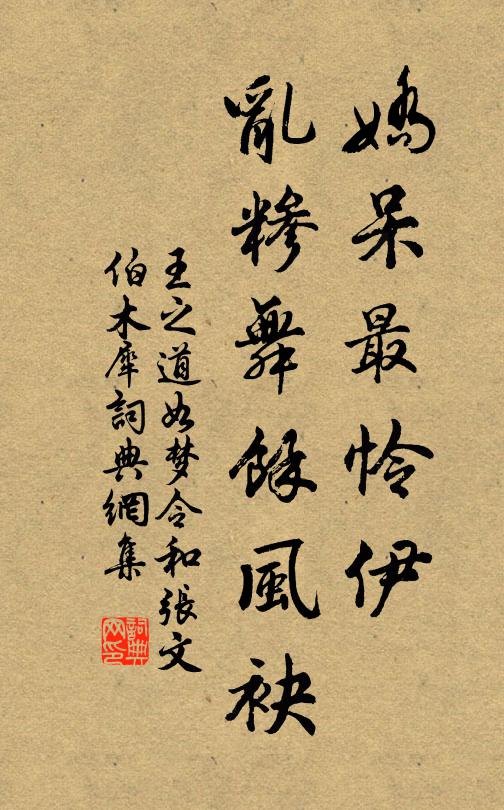 嬌呆最怜伊
亂糝舞餘風袂
王之道如梦令和張文
伯木犀詞典網集
詞典
网印